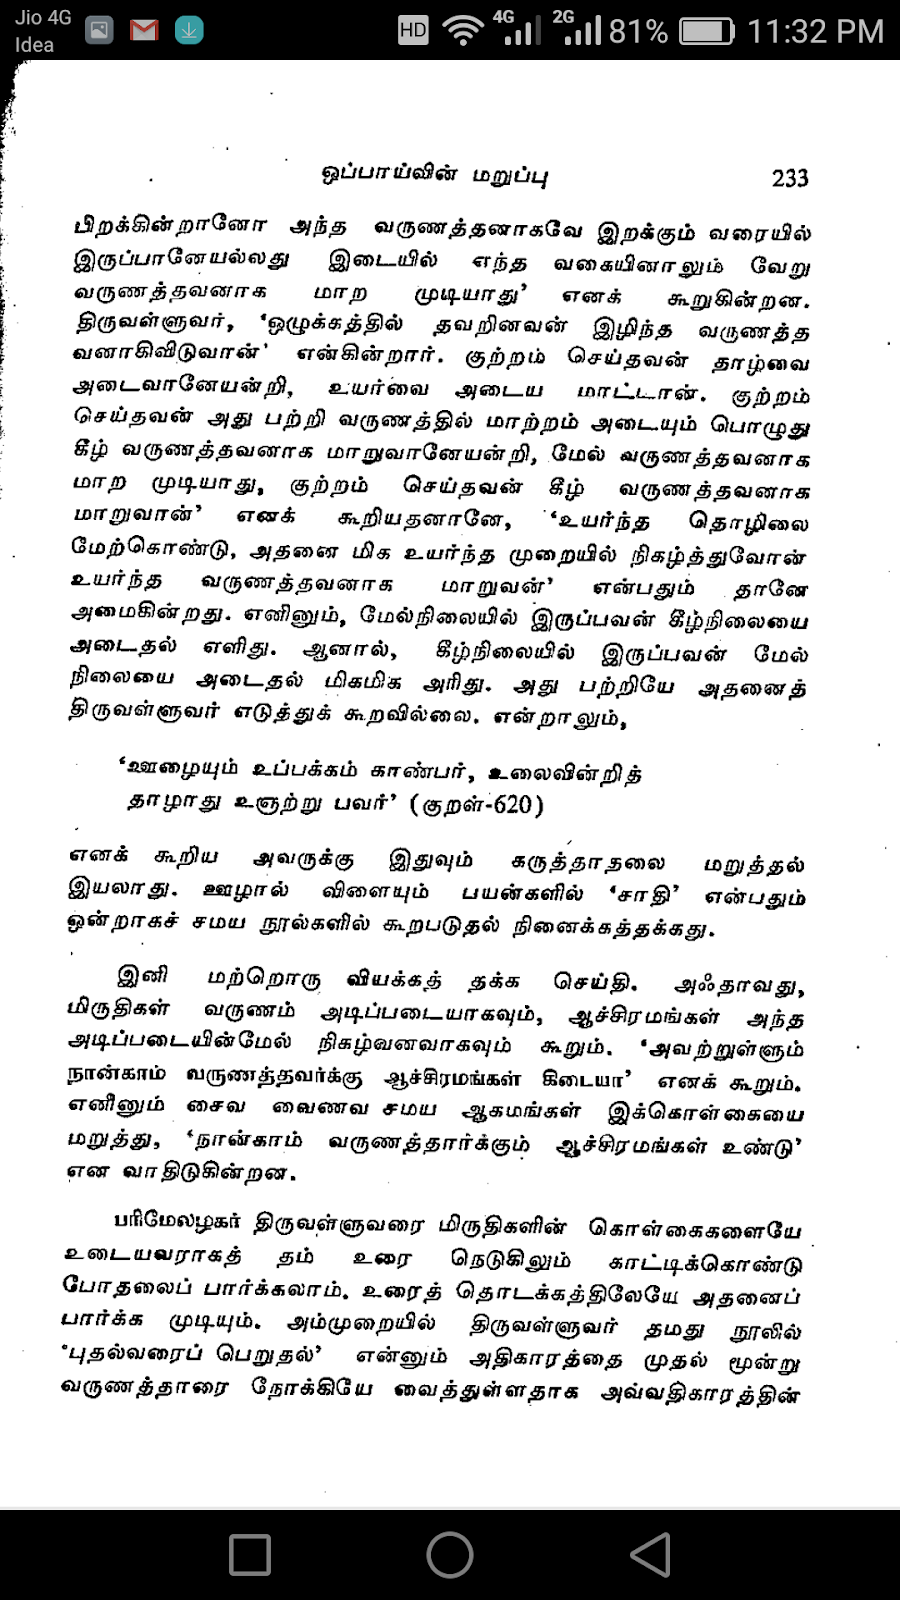 Jio 4G
Idea
HD 4G 2G 81% 11:32 PM
ஒப்பாய்வின் மறுப்பு 233
பிறக்கின்றானோ அந்த வருணத்தனாகவே இறக்கும் வரையில்
இருப்பானேயல்லது இடையில் எந்த வகையினாலும் வேறு
வருணத்தவனாக மாற முடியாது' எனக் கூறுகின்றன.
திருவள்ளுவர், 'ஒழுக்கத்தில் தவறினவன் இழிந்த வருணத்த
வனாகிவிடுவான்' என்கின்றார். குற்றம் செய்தவன் தாழ்வை
அடைவானேயன்றி, உயர்வை அடைய மாட்டான். குற்றம்
செய்தவன் அது பற்றி வருணத்தில் மாற்றம் அடையும் பொழுது
கீழ் வருணத்தவனாக மாறுவானேயன்றி, மேல் வருணத்தவனாக
மாற முடியாது, குற்றம் செய்தவன் கீழ் வருணத்தவனாக
மாறுவான்' எனக் கூறியதனானே, 'உயர்ந்த தொழிலை
மேற்கொண்டு, அதனை மிக உயர்ந்த முறையில் நிகழ்த்துவோன்
உயர்ந்த வருணத்தவனாக மாறுவன்' என்பதும் தானே
அமைகின்றது. எனினும், மேல்நிலையில் இருப்பவன் கீழ்நிலையை
அடைதல் எளிது. ஆனால், கீழ்நிலையில் இருப்பவன் மேல்
நிலையை அடைதல் மிகமிக அரிது. அது பற்றியே அதனைத்
திருவள்ளுவர் எடுத்துக் கூறவில்லை. என்றாலும்,
'ஊழையும் உப்பக்கம் காண்பர், உலைவின்றித்
தாழாது உஞற்று பவர்' (குறள்-620)
எனக் கூறிய அவருக்கு இதுவும் கருத்தாதலை மறுத்தல்
இயலாது. ஊழால் விளையும் பயன்களில் 'சாதி' என்பதும்
ஒன்றாகச் சமய நூல்களில் கூறபடுதல் நினைக்கத்தக்கது.
இனி மற்றொரு வியக்கத் தக்க செய்தி. அஃதாவது,
மிருதிகள் வருணம் அடிப்படையாகவும், ஆச்சிரமங்கள் அந்த
அடிப்படையின்மேல் நிகழ்வனவாகவும் கூறும். 'அவற்றுள்ளும்
நான்காம் வருணத்தவர்க்கு ஆச்சிரமங்கள் கிடையா' எனக் கூறும்.
எனினும் சைவ வைணவ சமய ஆகமங்கள் இக்கொள்கையை
மறுத்து, 'நான்காம் வருணத்தார்க்கும் ஆச்சிரமங்கள் உண்டு'
என வாதிடுகின்றன.
பரிமேலழகர் திருவள்ளுவரை மிருதிகளின் கொள்கைகளையே
உடையவராகத் தம் உரை நெடுகிலும் காட்டிக்கொண்டு
போதலைப் பார்க்கலாம். உரைத் தொடக்கத்திலேயே அதனைப்
பார்க்க முடியும். அம்முறையில் திருவள்ளுவர் தமது நூலில்
'புதல்வரைப் பெறுதல்' என்னும் அதிகாரத்தை முதல் மூன்று
வருணத்தாரை நோக்கியே வைத்துள்ளதாக அவ்வதிகாரத்தின்